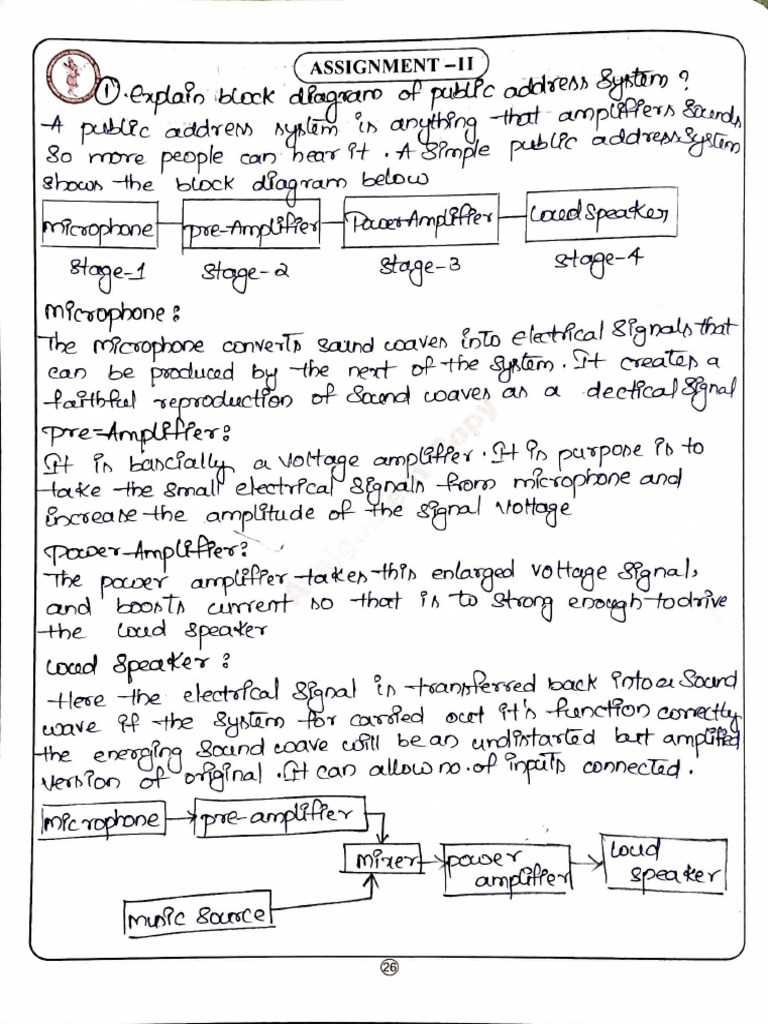 ASSIGNMENT – II
① . Explain block diagram of public address System ?
A public address system is anything that amplifiers Sounds
So more people can hear it . A Simple public address System
shows the block diagram below
microphone pre-Amplifier Power Amplifier Loud Speaker
Stage-1 Stage-2 Stage-3 Stage-4
Microphone :
The microphone converts sound waves into electrical Signals that
can be produced by the next of the System . It creates a
faithful reproduction of Sound waves as a dectical Signal
Pre-Amplifier :
It is bascially a voltage amplifier . It is purpose is to
take the small electrical signals from microphone and
increase the amplitude of the signal voltage
Power-Amplifier :
The power amplifier takes this enlarged voltage signal,
and boosts current so that is to strong enough to drive
the loud speaker
Loud Speaker :
Here the electrical Signal is transferred back into a Sound
wave if the System for carried out it's function correctly
the energing Sound wave will be an undistarted but amplified
version of original . It can allow no. of inputs connected .
microphone pre-amplifier
mixer power amplifier loud speaker
music source
26